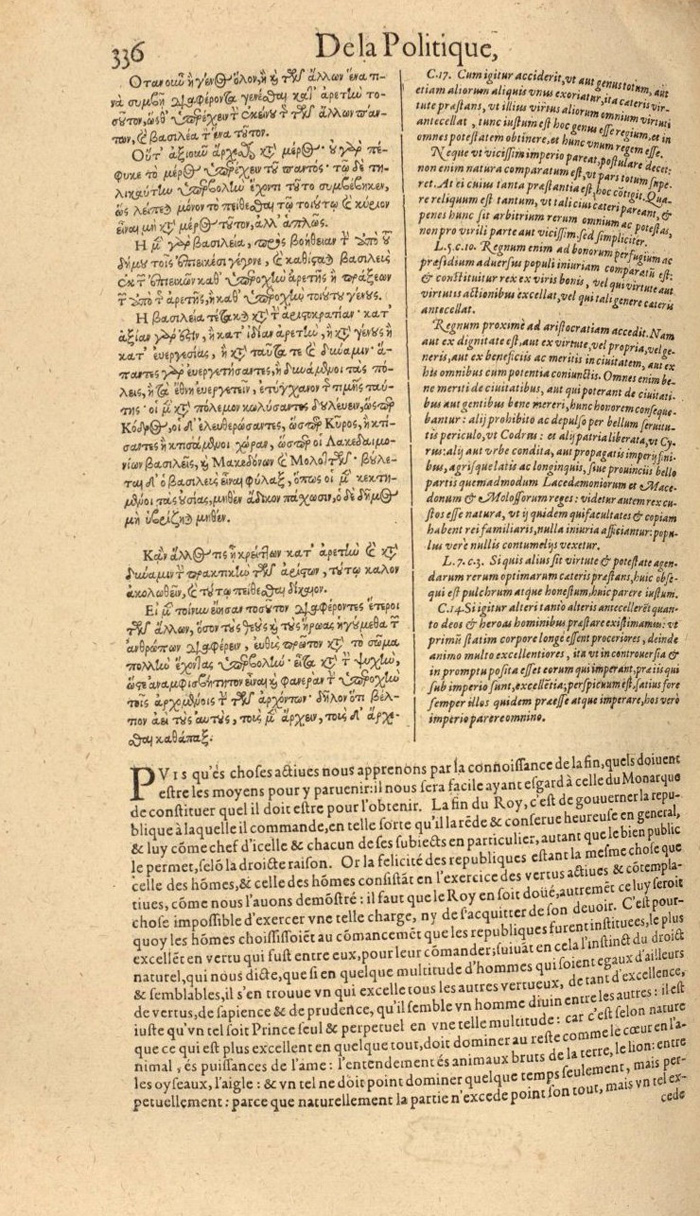 336 De la Politique,
Ὅταν οὖν ἢ γένος ὅλον, ἢ καὶ τῶν ἄλλων ἕνα τι-
νὰ συμβῇ διαφέροντα γενέσθαι κατ' ἀρετὴν το-
σοῦτον, ὥσθ' ὑπερέχειν τὴν ἐκείνου τῆς τῶν ἄλλων πάν-
των, καὶ βασιλέα τὸν ἕνα τοῦτον.
φυκε τὸ μέρος ὑπερέχειν τοῦ παντός· τῷ δὲ τη-
λικαύτην ὑπερβολὴν ἔχοντι τοῦτο συμβέβηκεν,
ὥστε λείπεται μόνον τὸ πείθεσθαι τῷ τοιούτῳ καὶ κύριον
εἶναι μὴ κατὰ μέρος τοῦτον, ἀλλ' ἁπλῶς.
Ἡ μὲν γὰρ βασιλεία, πρὸς βοήθειαν τὴν ὑπὸ τοῦ
δήμου τοῖς ἐπιεικέσι γέγονε, καὶ καθίσταται βασιλεὺς
ἐκ τῶν ἐπιεικῶν καθ' ὑπεροχὴν ἀρετῆς ἢ πράξεων
τῶν ἀπὸ τῆς ἀρετῆς, ἢ καθ' ὑπεροχὴν τοιούτου γένους.
Ἡ βασιλεία τέτακται κατὰ τὴν ἀριστοκρατίαν· κατ'
ἀξίαν γάρ ἐστιν, ἢ κατ' ἰδίαν ἀρετὴν, ἢ κατὰ γένους ἢ
κατ' εὐεργεσίας, ἢ κατὰ ταῦτά τε καὶ δύναμιν· ἅ-
παντες γὰρ εὐεργετήσαντες, ἢ δυνάμενοι τὰς πό-
λεις, ἢ τὰ ἔθνη εὐεργετεῖν, ἐτύγχανον τῆς τιμῆς ταύ-
της· οἱ μὲν κατὰ πόλεμον κωλύσαντες δουλεύειν, ὥσπερ
Κόδρος, οἱ δ' ἐλευθερώσαντες, ὥσπερ Κῦρος, ἢ κτί-
σαντες ἢ κτησάμενοι χώραν, ὥσπερ οἱ Λακεδαιμο-
νίων βασιλεῖς, καὶ Μακεδόνων καὶ Μολοττῶν· βούλε-
ται δ' ὁ βασιλεὺς εἶναι φύλαξ, ὅπως οἱ μὲν κεκτη-
μένοι τὰς οὐσίας, μηθὲν ἄδικον πάχωσιν, ὁ δὲ δῆμος
μὴ ὑβρίζηται μηθέν.
Κἂν ἄλλος τις ᾖ κρείττων κατ' ἀρετὴν καὶ κατὰ
δύναμιν τὴν πρακτικὴν τῶν ἀρίστων, τούτῳ καλὸν
ἀκολουθεῖν, καὶ τούτῳ πείθεσθαι δίκαιον.
Εἰ μὲν τοίνυν εἴησαν τοσοῦτον διαφέροντες ἕτεροι
τῶν ἄλλων, ὅσον τοὺς θεοὺς καὶ τοὺς ἥρωας ἡγούμεθα τῶν
ἀνθρώπων διαφέρειν, εὐθὺς πρῶτον κατὰ τὸ σῶμα
πολλὴν ἔχοντας ὑπερβολὴν· εἶτα κατὰ τὴν ψυχὴν,
ὥστε ἀναμφισβήτητον εἶναι καὶ φανερὰν τὴν ὑπεροχὴν
τοῖς ἀρχομένοις τὴν τῶν ἀρχόντων· δῆλον ὅτι βέλ-
τιον ἀεὶ τοὺς αὐτοὺς, τοὺς μὲν ἄρχειν, τοὺς δ' ἄρχε-
σθαι καθάπαξ.
C.17. Cum igitur acciderit, vt aut genus totum, aut
etiam aliorum aliquis vnus exoriatur, ita cateris vir-
tute præstans, vt illius virtus aliorum omnium virtuti
antecellat, tunc iustum est hoc genus esse regium, et in
omnes potestatem obtinere, et hunc vnum regem esse.
Neque vt vicissim imperio pareat, postulare decet:
non enim natura comparatum est, vt pars totum supe-
ret. At ei cuius tanta præstantia est, hoc cõtigit. Qua-
re reliquum est tantum, vt tali cui cateri pareant, &
penes hunc sit arbitrium rerum omnium ac potestas,
non pro virili parte aut vicissim, sed simpliciter.
L.5.c.10. Regnum enim ad bonorum perfugium ac
præsidium aduersus populi iniuriam comparatũ est:
& constituitur rex ex viris bonis, vel qui virtute aut
virtutis actionibus excellat, vel qui tali genere cateris
antecellat.
Regnum proximè ad aristocratiam accedit. Nam
aut ex dignitate est, aut ex virtute, vel propria, vel ge-
neris, aut ex beneficiis ac meritis in ciuitatem, aut ex
his omnibus cum potentia coniunctis. Omnes enim be-
ne meriti de ciuitatibus, aut qui poterant de ciuitati-
bus aut gentibus bene mereri, hunc honorem conseque-
bantur: alij prohibito ac depulso per bellum seruitu-
tis periculo, vt Codrus: et alij patria liberata, vt Cy-
rus: alij aut vrbe condita, aut propagatis imperij fini-
bus, agrisque latis ac longinquis, siue prouinciis bello
partis quemadmodum Lacedæmoniorum et Mace-
donum & Molossorum reges: videtur autem rex cu-
stos esse natura, vt ij quidem qui facultates & copiam
habent rei familiaris, nulla iniuria afficiantur: popu-
lus verò nullis contumeliis vexetur.
L.7.c.3. Si quis alius sit virtute & potestate agen-
darum rerum optimarum cateris præstans, huic obse-
qui est pulchrum atque honestum, huic parere iustum.
C.14. Si igitur alteri tanto alteris antecellerēt quan-
to deos & heroas hominibus præstare existimamus: vt
primũ statim corpore longè essent proceriores, deinde
animo multo excellentiores, ita vt in controuersia &
in promptu posita esset eorum qui imperant, præ iis qui
sub imperio sunt, excellẽtia; perspicuum est, satius fore
semper illos quidem præesse atque imperare, hos verò
imperio parere omnino.
PVIS qu'és choses actiues nous apprenons par la connoissance de la fin, quels doiuent
estre les moyens pour y paruenir: il nous sera facile ayant esgard à celle du Monarque
de constituer quel il doit estre pour l'obtenir. La fin du Roy, c'est de gouuerner la repu-
blique à laquelle il commande, en telle sorte qu'il la rēde & conserue heureuse en general,
& luy cōme chef d'icelle & chacun de ses subiects en particulier, autant que le bien public
le permet, selō la droicte raison. Or la felicité des republiques estant la mesme chose que
celle des hōmes, & celle des hōmes consistāt en l'exercice des vertus actiues & cōtempla-
tiues, cōme nous l'auons demōstré: il faut que le Roy en soit doüé, autremēt ce luy seroit
chose impossible d'exercer vne telle charge, ny de s'acquitter de son deuoir. C'est pour-
quoy les hōmes choisissoiēt au cōmancemēt que les republiques furent instituees, le plus
excellēt en vertu qui fust entre eux, pour leur cōmander; suiuāt en cela l'instinct du droict
naturel, qui nous dicte, que si en quelque multitude d'hommes qui soient egaux d'ailleurs
& semblables, il s'en trouue vn qui excelle tous les autres vertueux, de tant d'excellence,
de vertus, de sapience & de prudence, qu'il semble vn homme diuin entre les autres: il est
iuste qu'vn tel soit Prince seul & perpetuel en vne telle multitude: car c'est selon nature
que ce qui est plus excellent en quelque tout, doit dominer au reste comme le cœur en l'a-
nimal, és puissances de l'ame: l'entendement és animaux bruts de la terre, le lion: entre
les oyseaux, l'aigle: & vn tel ne doit point dominer quelque temps seulement, mais per-
petuellement: parce que naturellement la partie n'excede point son tout, mais vn tel ex-
cede